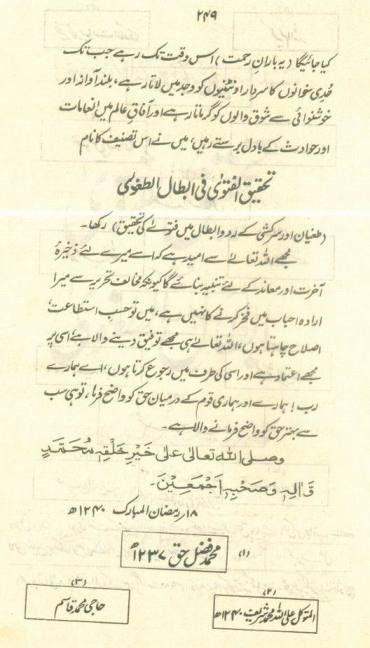 ۲۴۹
کیا جائیگا (یہ بارانِ رحمت) اس وقت تک رہے جب تک
حُدی خوانوں کا سردار اونٹنیوں کو وجد میں لاتا رہے، بلند آواز اور
خوشنوائی سے شوق والوں کو گرماتا رہے اور آفاقِ عالم میں انعامات
اور حوادث کے بادل برستے رہیں، میں نے اس تصنیف کا نام
تحقیق الفتوٰی فی ابطال الطغوٰی
(طغیان اور سرکشی کے رد و ابطال میں فتوے کی تحقیق) رکھا۔
مجھے اللہ تعالےٰ سے امید ہے کہ اسے میرے لئے ذخیرۂ
آخرت اور معاند کے لئے تنبیہ بنائے گا کیونکہ مخالف تحریر سے میرا
ارادہ احباب میں فخر کرنے کا نہیں ہے، میں تو حسب استطاعت
اصلاح چاہتا ہوں، اللہ تعالےٰ ہی مجھے توفیق دینے والا ہے اسی پر
مجھے اعتماد ہے اور اسی کی طرف میں رجوع کرتا ہوں، اے ہمارے
رب! ہمارے اور ہماری قوم کے درمیان حق کو واضح فرما، تو ہی سب
سے بہتر حق کو واضح فرمانے والا ہے۔
وصلی اللہ تعالیٰ علیٰ خَیْرِ خَلْقِہٖ مُحَمَّدٍ
وَّاٰلِہٖ وَصَحْبِہٖ اَجْمَعِیْنَ۔
۱۸ر رمضان المبارک ۱۲۴۰ھ
(۱)
محمد فضل حق ۱۲۳۷ھ
(۲)
المتوکل علی اللہ محمد شریف ۱۲۴۰ھ
(۳)
حاجی محمد قاسم